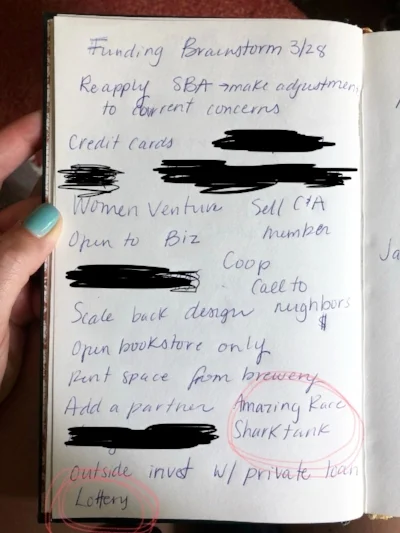 Funding Brainstorm 3/28
Reapply SBA → make adjustmen
to current concerns
Credit cards
Women Venture Sell C&A
Open to Biz member
Coop
Call to
Scale back design neighbors
$
Open bookstore only
Rent space from brewery
Add a partner Amazing Race
Shark tank
Outside invest w/ private loan
Lottery
Ja